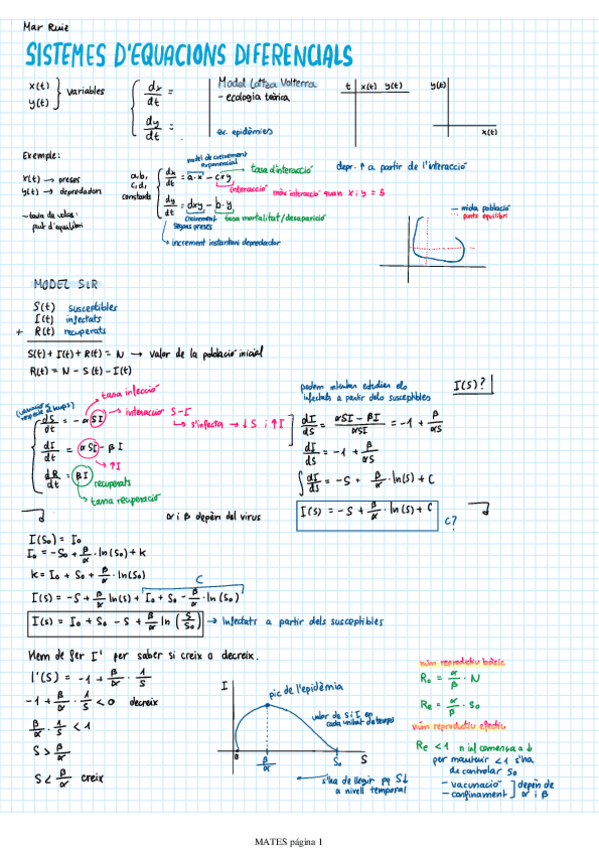 Mar Ruiz
SISTEMES D'EQUACIONS DIFERENCIALS
x(t)
y(t) } variables
dx/dt =
dy/dt =
Model Lotka Volterra
- ecologia teòrica
ex. epidèmies
t | x(t) y(t)
y(t)
x(t)
Exemple:
x(t) → preses
y(t) → depredador
a, b, c, d, constants
model de creixement exponencial
dx/dt = a·x - cxy
tasa d'interacció
interacció
màx interacció quan x i y = s
dy/dt = dxy - b·y
creixement segons preses
tasa mortalitat/desaparició
increment instantani depredador
depr. ↑ a partir de l'interacció
punt d'equilibri
— mida població
punts equilibri
MODEL SIR
S(t) susceptibles
I(t) infectats
+ R(t) recuperats
S(t) + I(t) + R(t) = N → valor de la població inicial
R(t) = N - S(t) - I(t)
tasa infecció
dS/dt = -αSI → interacció S-I
→ s'infecta → ↓S i ↑I
dI/dt = αSI - βI
↑I
dR/dt = βI
recuperats
tasa recuperació
α i β depèn del virus
podem intentar estudiar els
infectats a partir dels susceptibles
I(S)?
dI/dS = αSI - βI / -αSI = -1 + β/αS
dI/dS = -1 + β/αS
∫ dI/dS = -S + β/α · ln(S) + C
I(S) = -S + β/α · ln(S) + C
C?
I(S₀) = I₀
I₀ = -S₀ + β/α · ln(S₀) + k
k = I₀ + S₀ + β/α · ln(S₀)
C
I(S) = -S + β/α · ln(S) + I₀ + S₀ - β/α · ln(S₀)
I(S) = I₀ + S₀ - S + β/α ln (S/S₀) → Infectats a partir dels susceptibles
Hem de fer I' per saber si creix o decreix.
I'(S) = -1 + β/α · 1/S
-1 + β/α · 1/S < 0 decreix
β/α · 1/S < 1
S > β/α
S < β/α creix
I
pic de l'epidèmia
valor de S i I en
cada unitat de temps
0
β/α
S₀
S
s'ha de llegir pq S↓
a nivell temporal
núm reproductiu bàsic
R₀ = α/β · N
Re = α/β · S₀
núm reproductiu efectiu
Re < 1 n inf comensa a ↓
per mantenir < 1 s'ha
de controlar S₀
- vacunació
- confinament ] depèn de α i β
MATES página 1